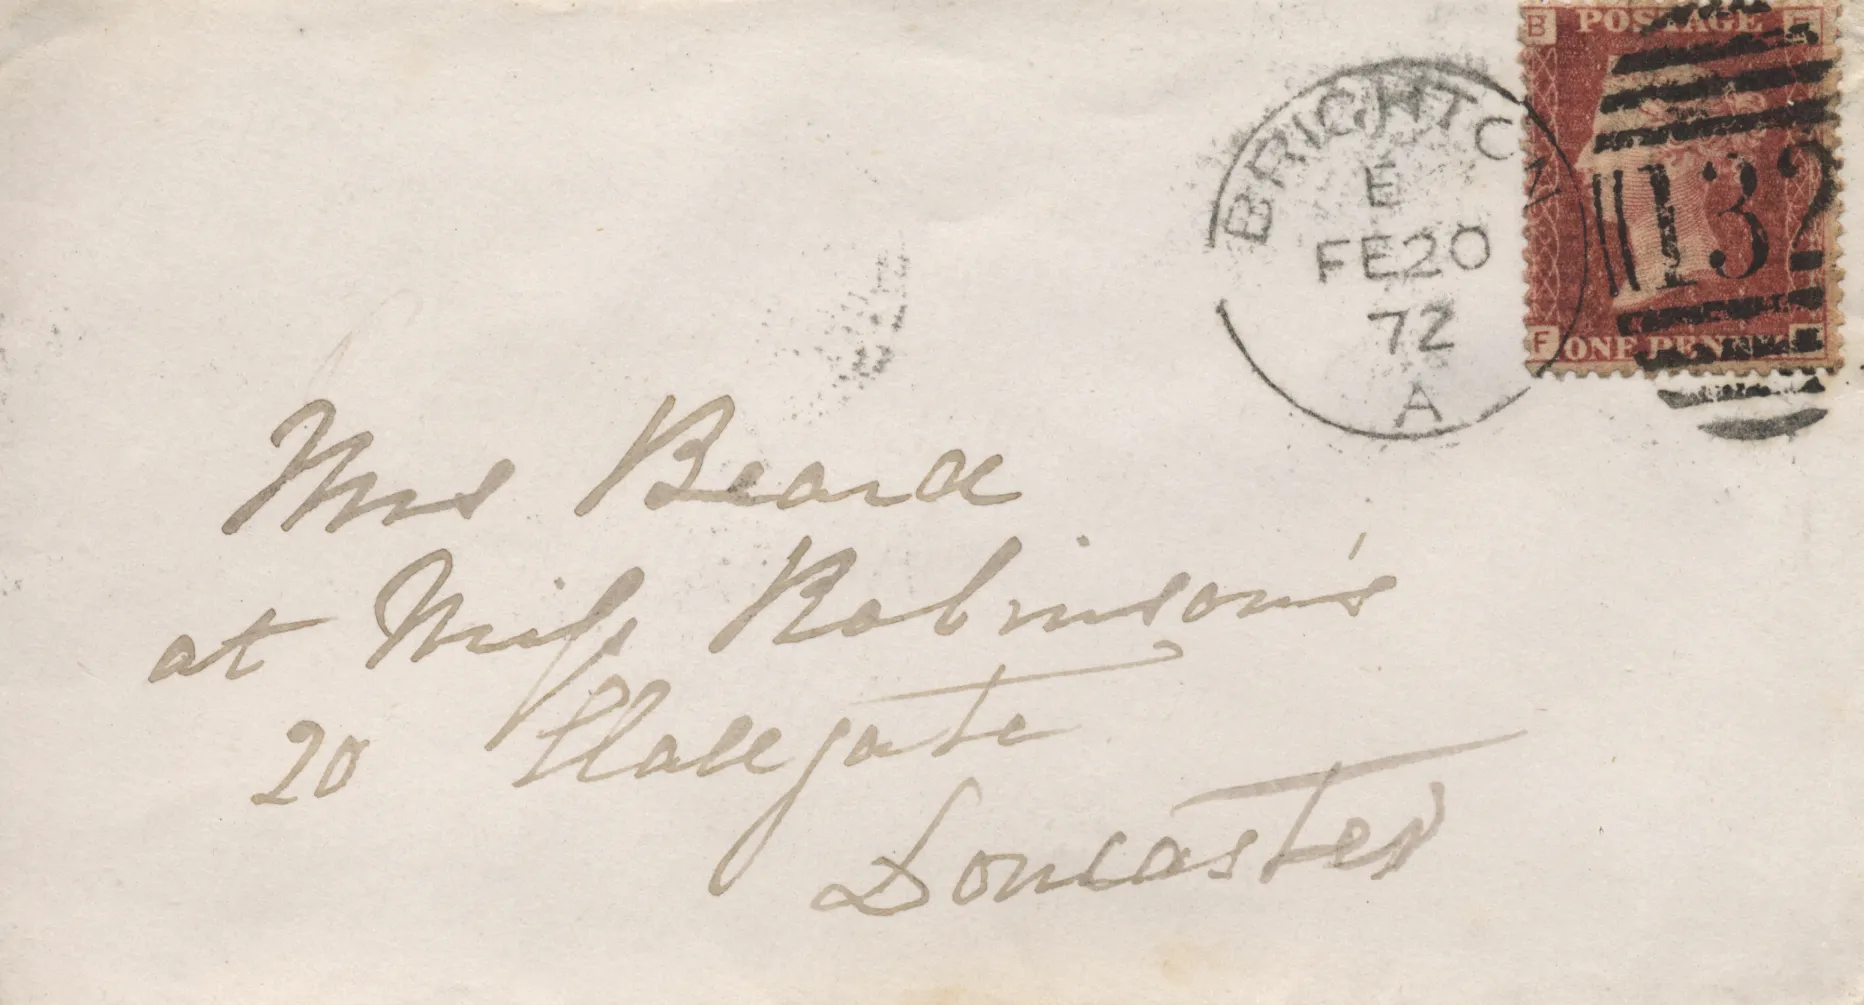 BRIGHTON
E
FE20
72
A
B
POSTAGE
132
F ONE PENNY
Mrs Beard
at Miss Robinson's
20 Hallgate
Doncaster